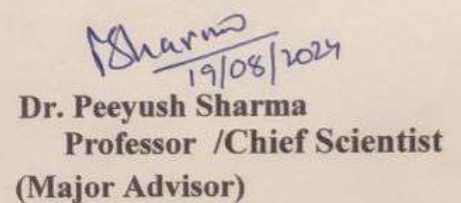 PSharma
19/08/2024
Dr. Peeyush Sharma
Professor /Chief Scientist
(Major Advisor)